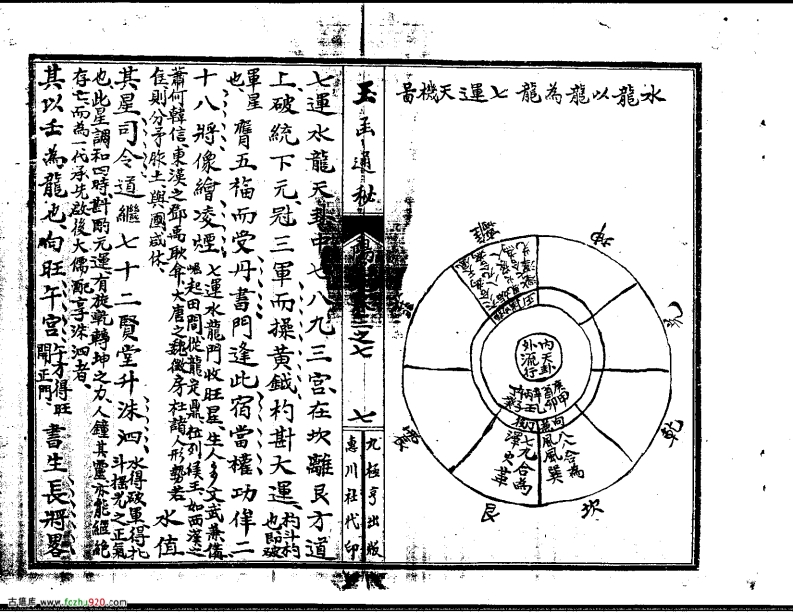 水龍以龍為龍七運天機畨
坤
兌
乾
坎
艮
震
內天卦
外流行
玉函通秘
卷三之七
七
九極亨出版
惠川社代印
七運水龍天卦中七八九三宮在坎離艮方道
上破統下元冠三軍而操黃鉞杓斟大運
杓斗杓也即破軍星也
膺五福而受丹書門逢此宿當權功侔二
十八將像繪凌煙
七運水龍門收旺星生人多文武兼備崛起田間從龍定鼎拉列侯王如西漢之
蕭何韓信東漢之鄧禹耿弇大唐之魏徵房杜諸人形勢若
住則分矛胙土與國咸休
水值
其星司令道繼七十二賢堂升洙泗
水得破軍得北斗搖光之正氣
也此星調和四時斟酌元運有旋乾轉坤之力人鍾其靈亦能繼絕
存亡而為一代承先啟後大儒配享洙泗者
其以壬為龍也向旺午宮
午才得旺開正門
書生長將畧
古籍庫 www.fczhu920.com